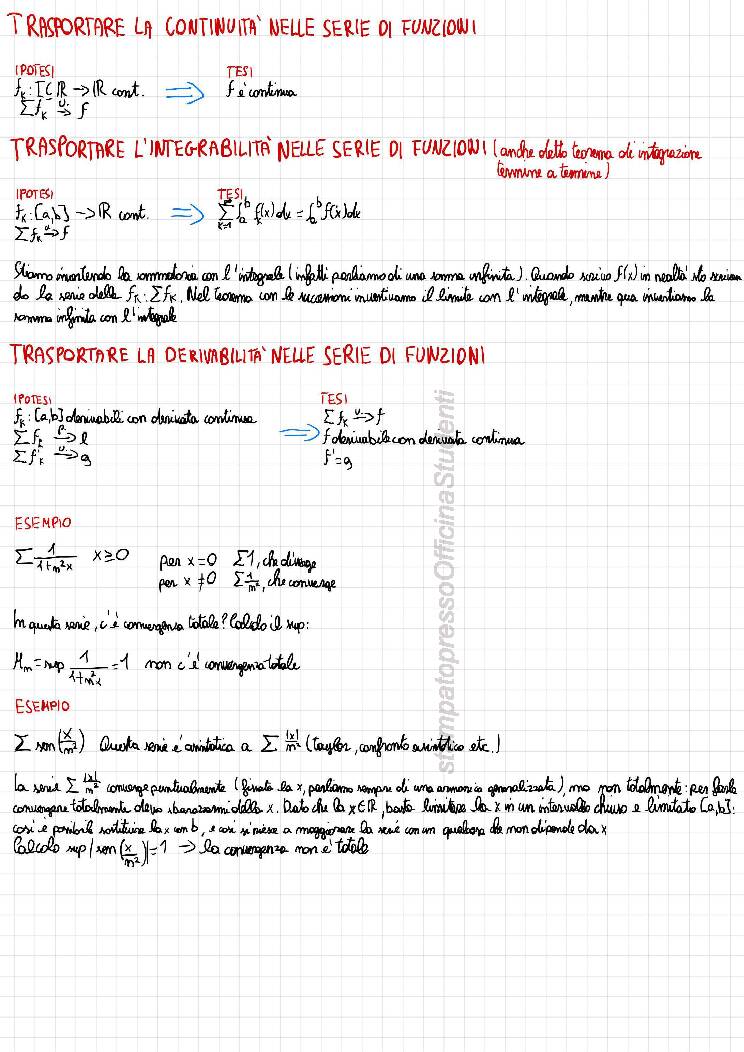 TRASPORTARE LA CONTINUITÀ NELLE SERIE DI FUNZIONI
IPOTESI TESI
f_k: I⊆ℝ → ℝ cont. ⟹ f è continua
Σf_k →ᵘ· f
TRASPORTARE L'INTEGRABILITÀ NELLE SERIE DI FUNZIONI (anche detto teorema di integrazione
termine a termine)
IPOTESI TESI
f_k: [a,b] → ℝ cont. ⟹ Σ_{k=1}^∞ ∫_a^b f_k(x)dx = ∫_a^b f(x)dx
Σf_k →ᵘ· f
Stiamo invertendo la sommatoria con l'integrale (infatti parliamo di una somma infinita). Quando scrivo f(x) in realtà sto scriven
do la serie delle f_k: Σf_k. Nel teorema con le successioni invertivamo il limite con l'integrale, mentre qua invertiamo la
somma infinita con l'integrale
TRASPORTARE LA DERIVABILITÀ NELLE SERIE DI FUNZIONI
IPOTESI TESI
f_k: [a,b] derivabili con derivata continua Σf_k →ᵘ· f
Σf_k →ᵖ· l ⟹ f derivabile con derivata continua
Σf'_k →ᵘ· g f'=g
ESEMPIO
Σ 1/(1+n²x) x≥0 per x=0 Σ1, che diverge
per x≠0 Σ 1/n², che converge
In questa serie, c'è convergenza totale? Calcolo il sup:
M_n = sup 1/(1+n²x) = 1 non c'è convergenza totale
ESEMPIO
Σ sen(x/n²) Questa serie è asintotica a Σ |x|/n² (taylor, confronto asintotico etc.)
La serie Σ |x|/n² converge puntualmente (fissato la x, parliamo sempre di una armonica generalizzata), ma non totalmente: per farla
convergere totalmente devo sbarazzarmi della x. Dato che la x∈ℝ, basta limitare la x in un intervallo chiuso e limitato [a,b]:
così è possibile sostituire la x con b, e così si riesce a maggiorare la serie con un qualcosa che non dipende da x
Calcolo sup|sen(x/n²)|=1 → la convergenza non è totale
stampatopressoOfficinaStudenti